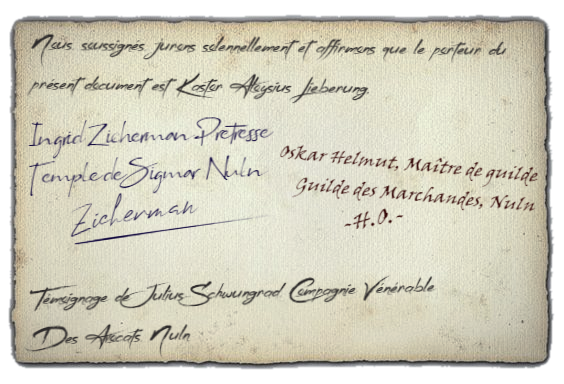 Nous soussignés jurons solennellement et affirmons que le porteur du
présent document est Kastor Aloysius Lieberung.
Ingrid Zicherman Pretresse
Temple de Sigmar Nuln
Zicherman
Oskar Helmut, Maître de guilde
Guilde des Marchandes, Nuln
-H.O.-
Témoignage de Julius Schwungrad Compagnie Vénérable
Des Avocats Nuln